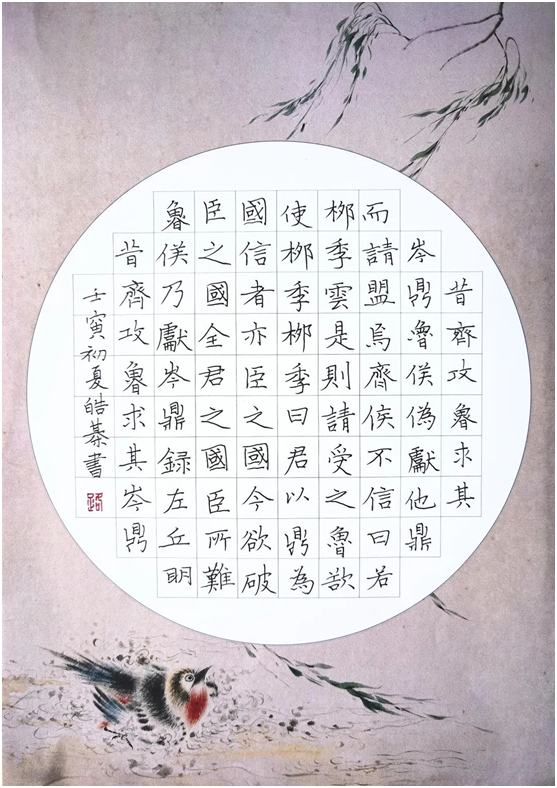 昔齊攻魯求其
岑鼎魯侯偽獻他鼎
而請盟焉齊侯不信曰若
柳季雲是則請受之魯欲
使柳季柳季曰君以鼎為
國信者亦臣之國今欲破
臣之國全君之國臣所難
魯侯乃獻岑鼎録左丘明
昔齊攻魯求其岑鼎
壬寅初夏皓綦書